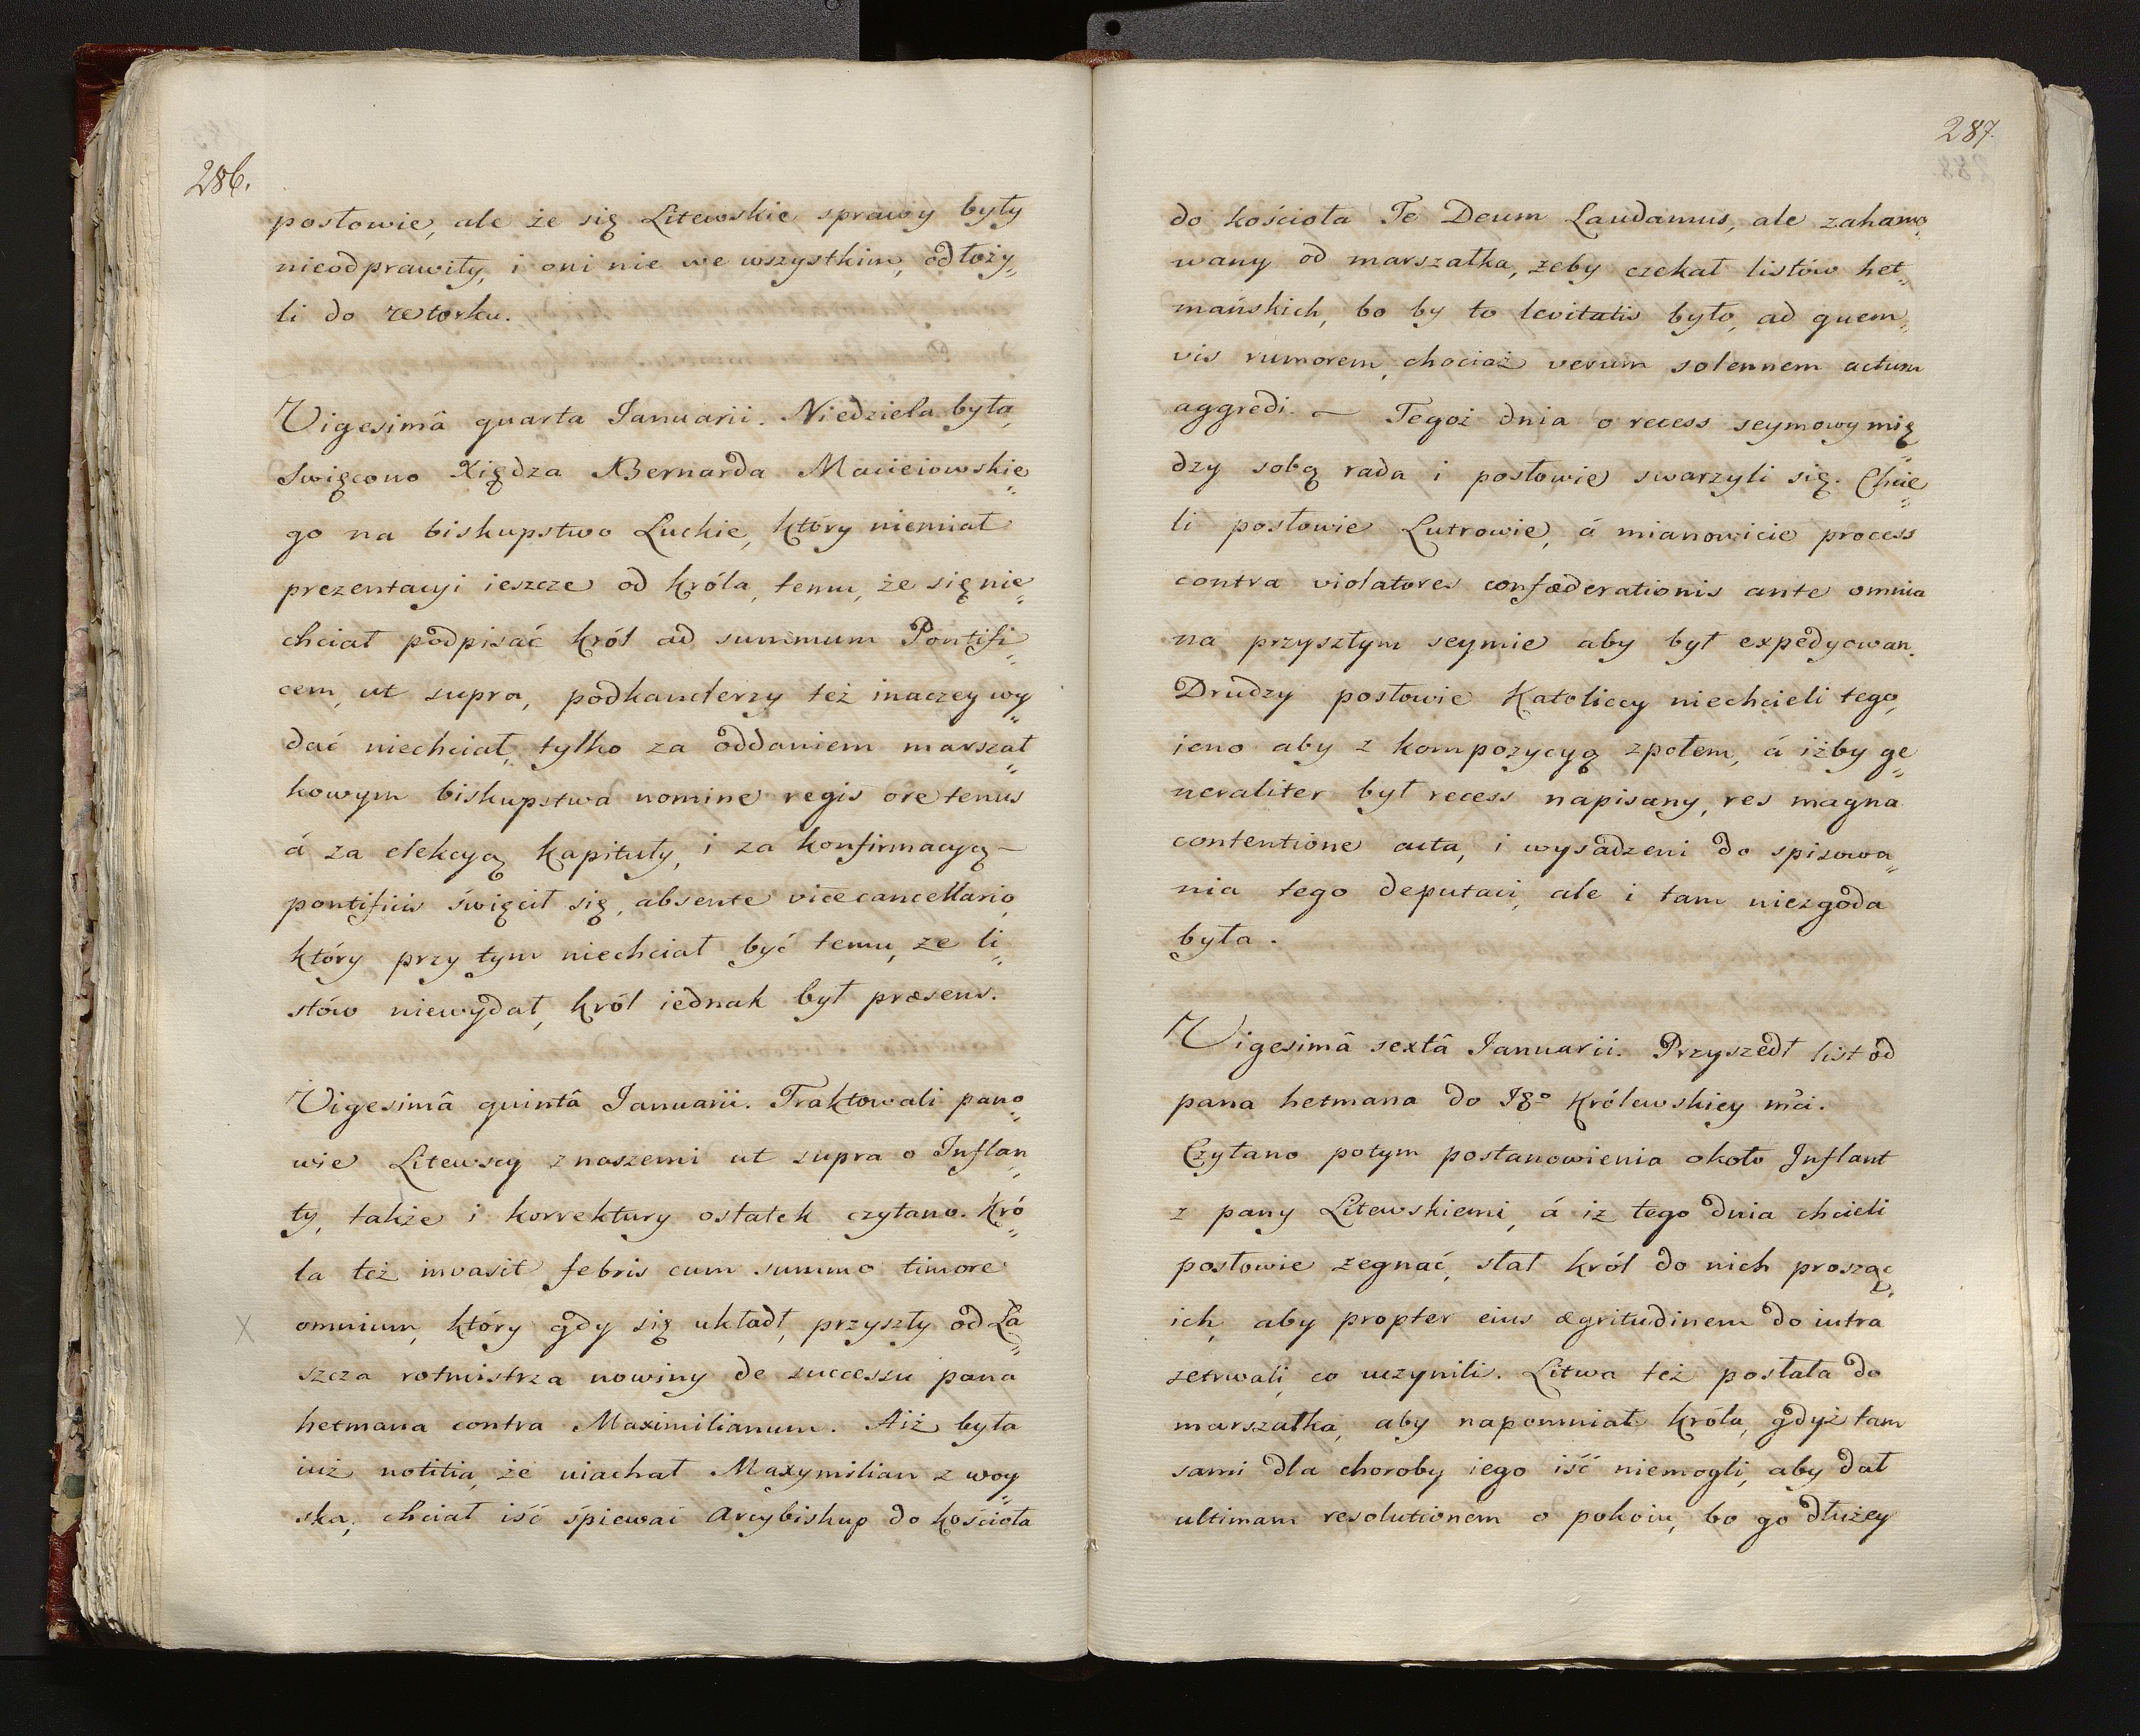 286.
posłowie, ale że się Litewskie sprawy były
nieodprawiły, i oni nie we wszystkim, odłoży„
li do wtorku.
Vigesimâ quarta Ianuarii. Niedziela była,
Swięcono Xiędza Bernarda Macieiowskie„
go na biskupstwo Luckie, który niemiał
prezentacyi ieszcze od króla, temu, że się nie„
chciał podpisać król ad summum Pontifi„
cem, ut supra, podkanclerzy też inaczey wy„
dać niechciał, tylko za oddaniem marszał„
kowym biskupstwa nomine regis ore tenus
á za elekcyą kapituły, i za konfirmacyą —
pontificis święcił się, absente vicecancellario,
który przy tym niechciał być temu, ze li„
stów niewydał, król iednak był præsens.
Vigesimâ quintâ Ianuarii. Traktowali pano„
wie Litewscy z naszemi ut supra o Inflan„
ty, także i korrektury ostatek czytano. Kró„
la też invasit febris cum summo timore
omnium, który gdy się układł, przyszły od Ła„
szcza rotmistrza nowiny de successu pana
hetmana contra Maximilianum. Aiż była
iuż notitia, że uiachał Maxymilian z woy„
ska, chciał iść śpiewać Arcybiskup do kościoła
287.
do kościoła Te Deum Laudamus, ale zahamo„
wany od marszałka, żeby czekał listów het„
mańskich, bo by to levitatis było, ad quem„
vis rumorem, chociaż verum solennem actum
aggredi. — Tegoż dnia o recess seymowy mię„
dzy sobą rada i posłowie swarzyli się. Chcie„
li posłowie Lutrowie, á mianowicie process
contra violatores confœderationis ante omnia
na przyszłym seymie aby był expedyowan.
Drudzy posłowie Katoliccy niechcieli tego,
ieno aby z kompozycyą zpołem, á iżby ge„
neraliter był recess napisany, res magna
contentione acta, i wysadzeni do spisowa„
nia tego deputaci, ale i tam niezgoda
była.
Vigesimâ sextâ Ianuarii. Przyszedł list od
pana hetmana do Igo Królewskiey mci.
Czytano potym postanowienia około Inflant
z pany Litewskiemi, á iz tego dnia chcieli
posłowie zegnać, słał król do nich prosząc„
ich, aby propter eius ægritudinem do iutra
zetrwali, co uczynili. Litwa też posłała do
marszałka, aby napomniał króla, gdyż tam
sami dla choroby iego iść niemogli, aby dał
ultimam resolutionem o pokoiu, bo go dłużey